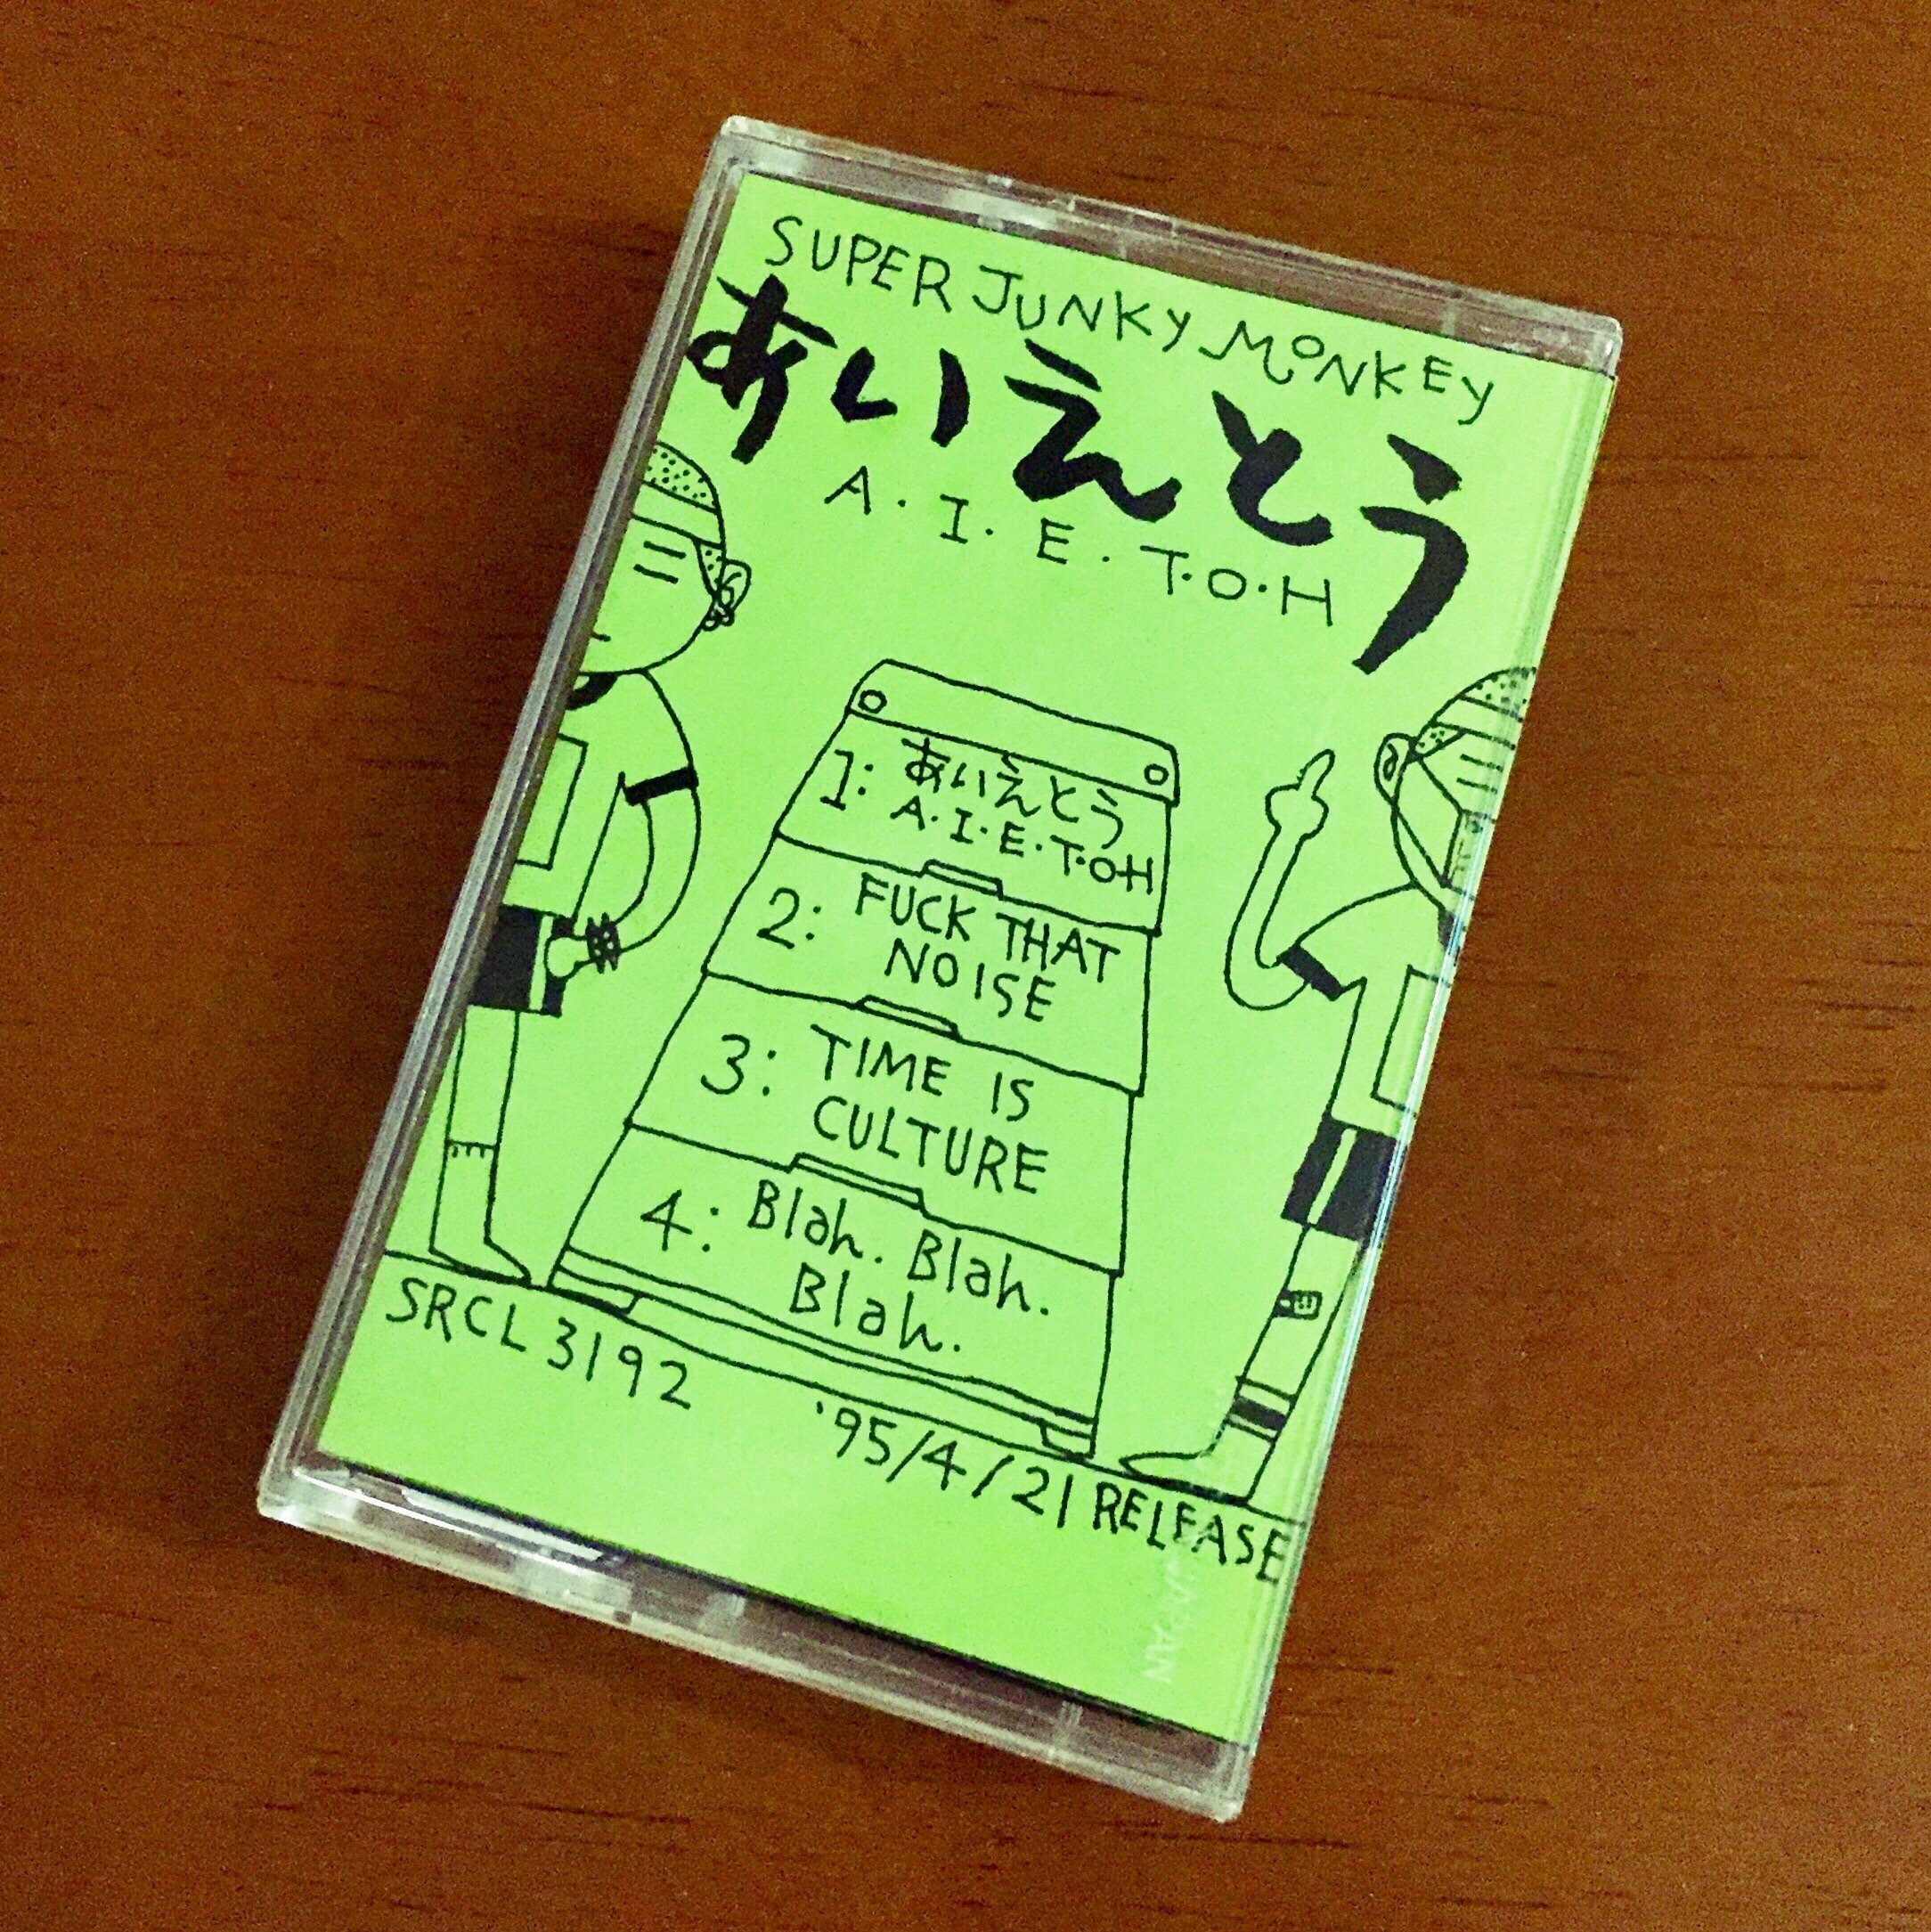 SUPER JUNKY MONKEY
あいえとう
A.I.E.T.O.H
1: あいえとう
A.I.E.T.O.H
2: FUCK THAT
NOISE
3: TIME IS
CULTURE
4: Blah. Blah.
Blah.
SRCL 3192 '95/4/21 RELEASE
JAPAN